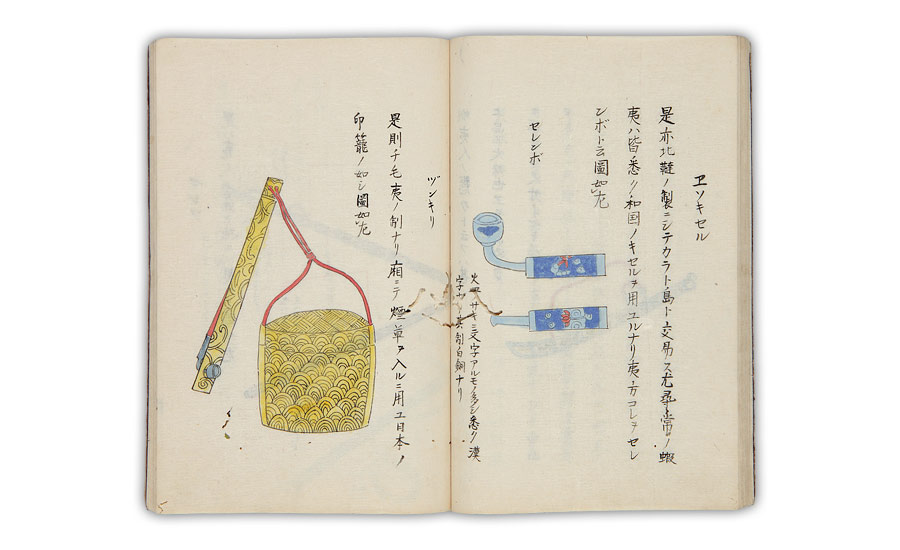 ヱソキセル
是亦北韃ノ製ニシテカラト島ト交易ス尤尋常ノ蝦
夷ハ皆悉ク和国ノキセルヲ用ユルナリ夷方コレヲセレ
ンボト云圖如左
セレンボ
火皿サキニ文字アルモノ多シ悉ク漢
字ナリ其制白銅ナリ
ヅンキリ
是則チ毛夷ノ制ナリ廂ニテ煙草ヲ入ルニ用ユ日本ノ
印籠ノ如シ圖如左